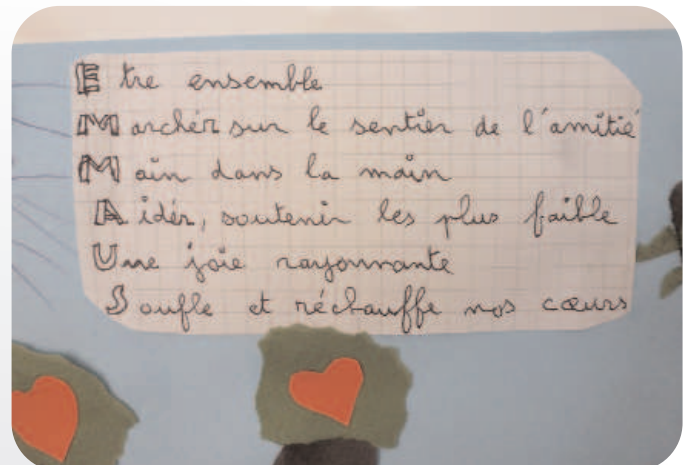 Etre ensemble
Marcher sur le sentier de l'amitié
Main dans la main
Aider, soutenir les plus faible
Une joie rayonnante
Soufle et réchauffe nos cœurs